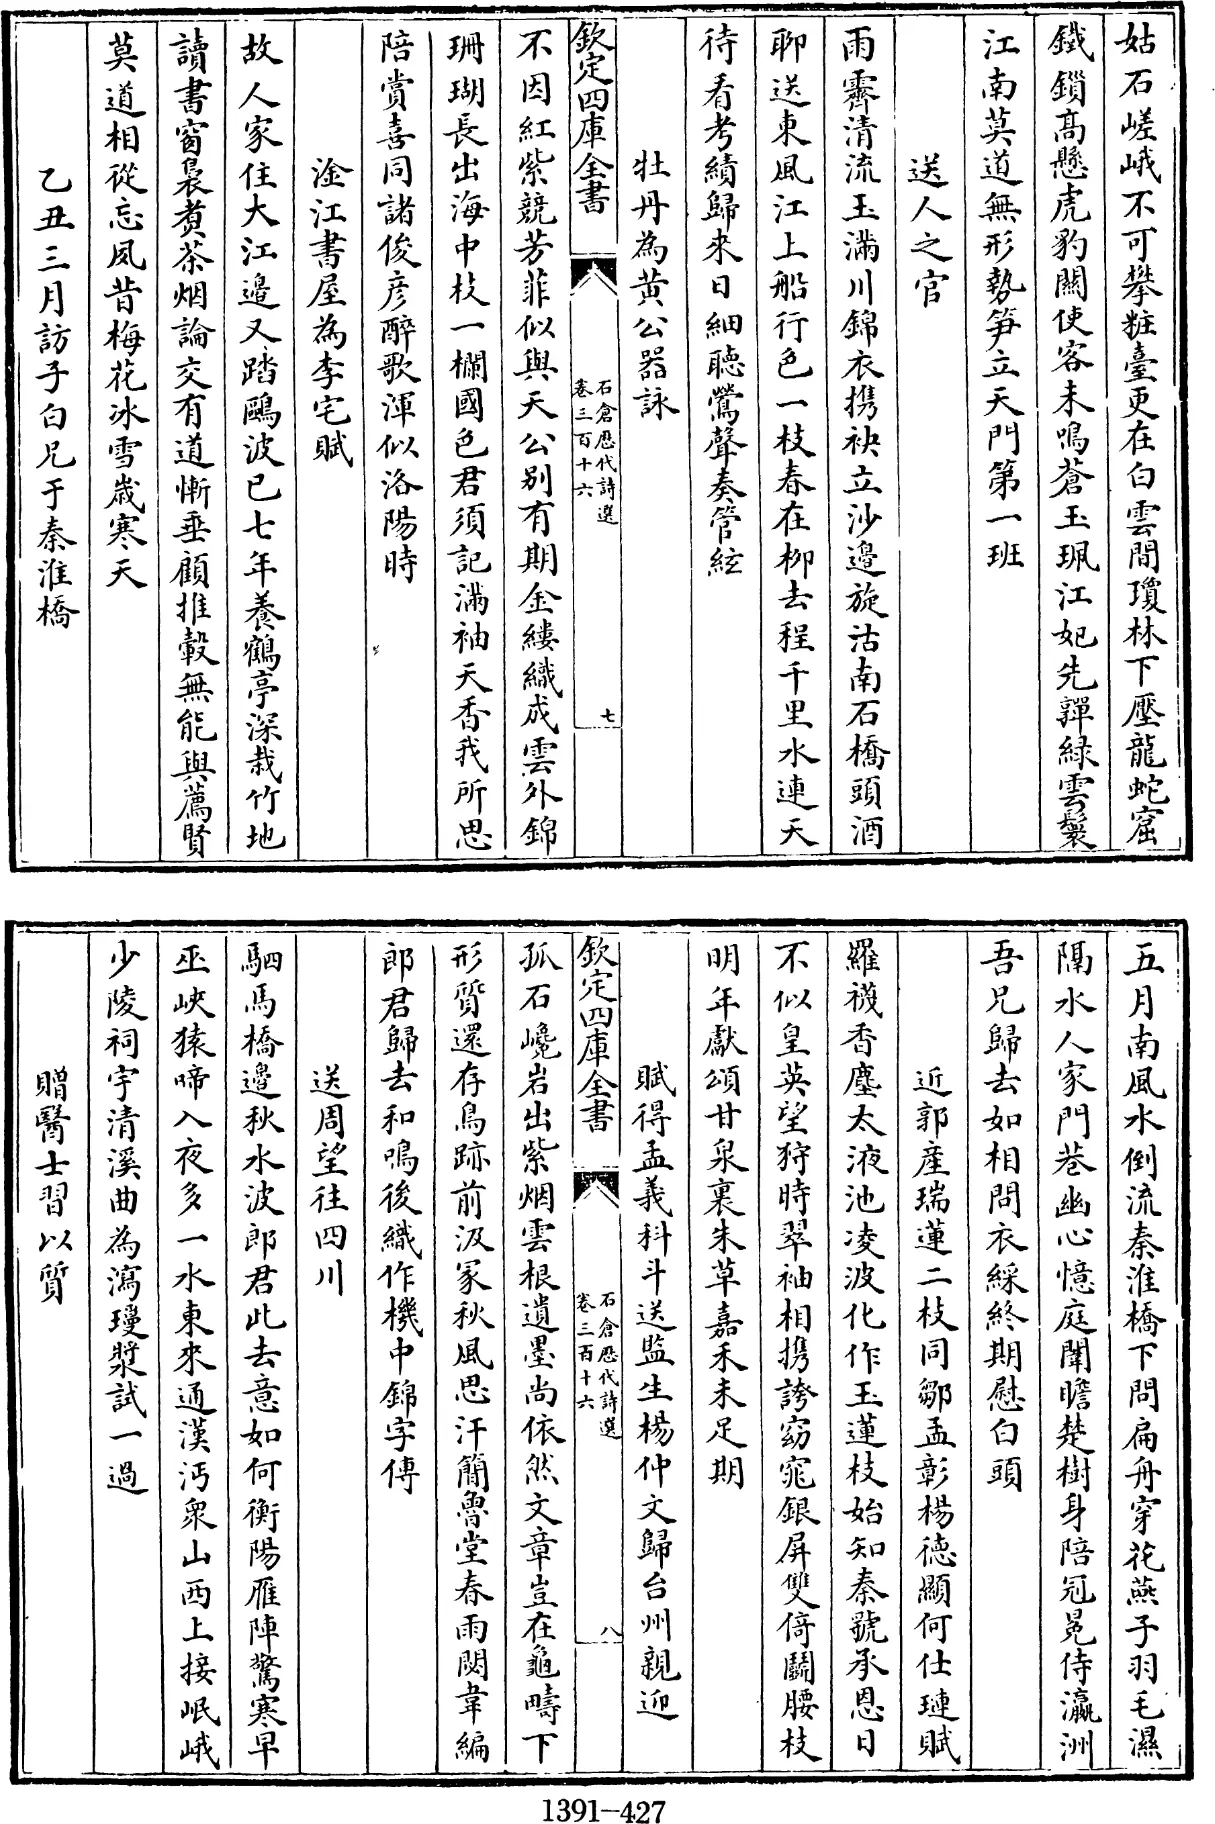 姑石嵯峨不可攀粧臺更在白雲間瓊林下壓龍蛇窟
鐵鎖髙懸虎豹關使客未鳴蒼玉珮江妃先嚲緑雲鬟
江南莫道無形勢笋立天門第一班
送人之官
雨霽清流玉滿川錦衣携袂立沙邉旋沽南石橋頭酒
聊送東風江上船行色一枝春在栁去程千里水連天
待看考績歸來日細聴鶯聲奏管絃
牡丹為黄公器詠
欽定四庫全書
石倉歴代詩選
卷三百十六
七
不因紅紫競芳菲似與天公别有期金縷織成雲外錦
珊瑚長出海中枝一欄國色君須記滿袖天香我所思
陪賞喜同諸俊彦醉歌渾似洛陽時
淦江書屋為李宅賦
故人家住大江邉又踏鷗波已七年養鶴亭深栽竹地
讀書窗裊煑茶烟論交有道慚垂顧推轂無能與薦賢
莫道相從忘夙昔梅花冰雪歳寒天
乙丑三月訪子白兄于秦淮橋
五月南風水倒流秦淮橋下問扁舟穿花燕子羽毛濕
隔水人家門巷幽心憶庭闈瞻楚樹身陪冠冕侍瀛洲
吾兄歸去如相問衣綵終期慰白頭
近郭産瑞蓮二枝同鄒孟彰楊德顯何仕璉賦
羅襪香塵太液池凌波化作玉蓮枝始知秦虢承恩日
不似皇英望狩時翠袖相携誇窈窕銀屏雙倚鬬腰枝
明年獻頌甘泉裏朱草嘉禾未足期
賦得孟義科斗送監生楊仲文歸台州親迎
欽定四庫全書
石倉歴代詩選
卷三百十六
八
孤石巉岩出紫烟雲根遺墨尚依然文章豈在龜疇下
形質還存鳥跡前汲冢秋風思汗簡魯堂春雨閟韋編
郎君歸去和鳴後織作機中錦字傳
送周望往四川
駟馬橋邉秋水波郎君此去意如何衡陽雁陣驚寒早
巫峽猿啼入夜多一水東來通漢沔衆山西上接岷峨
少陵祠宇清溪曲為瀉瓊漿試一過
贈醫士習以質
1391-427